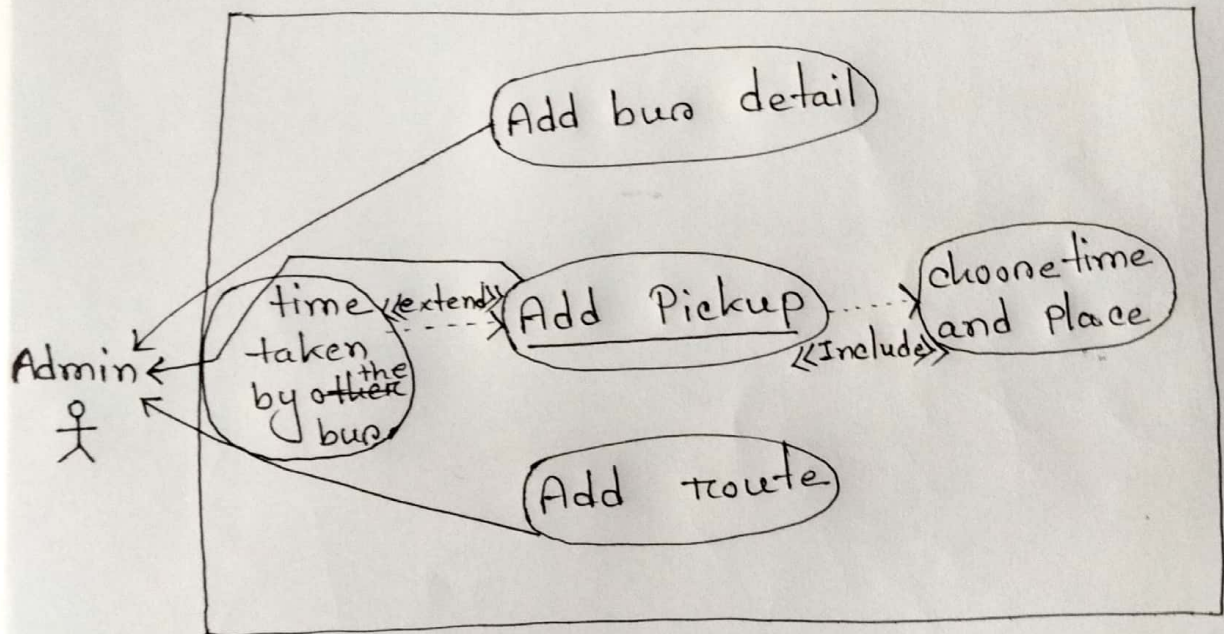 Add bus detail
time
taken
by other the
bus
<<extend>>
Add Pickup
<<Include>>
choose time
and place
Admin
Add route